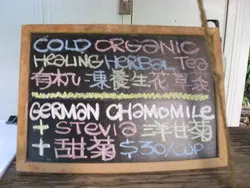 COLD ORGANIC
HEALING HERBAL TEA
有机凍養生花草茶
GERMAN CHAMOMILE
+ STEVIA 洋甘菊
+ 甜菊 $30/CUP